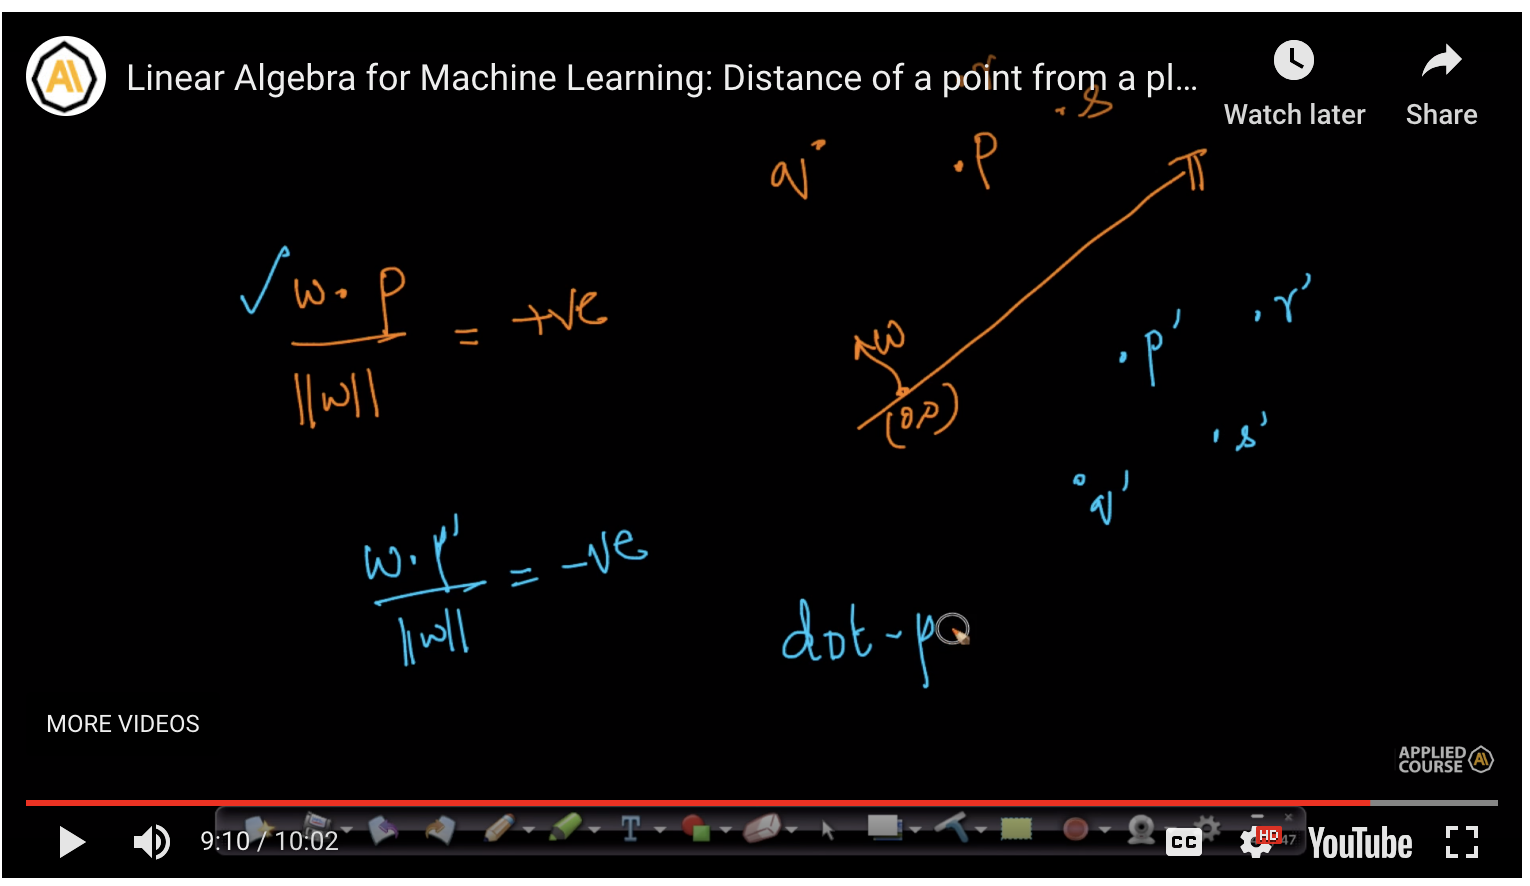 Linear Algebra for Machine Learning: Distance of a point from a pl...
Watch later
Share
r
. s
q .
. p
π
w . p
||w||
= +ve
w
(0,0)
. p'
. r'
. s'
. q'
w . p'
||w||
= -ve
dot - p
MORE VIDEOS
APPLIED
COURSE
9:10 / 10:02
T
CC
HD
47
YouTube